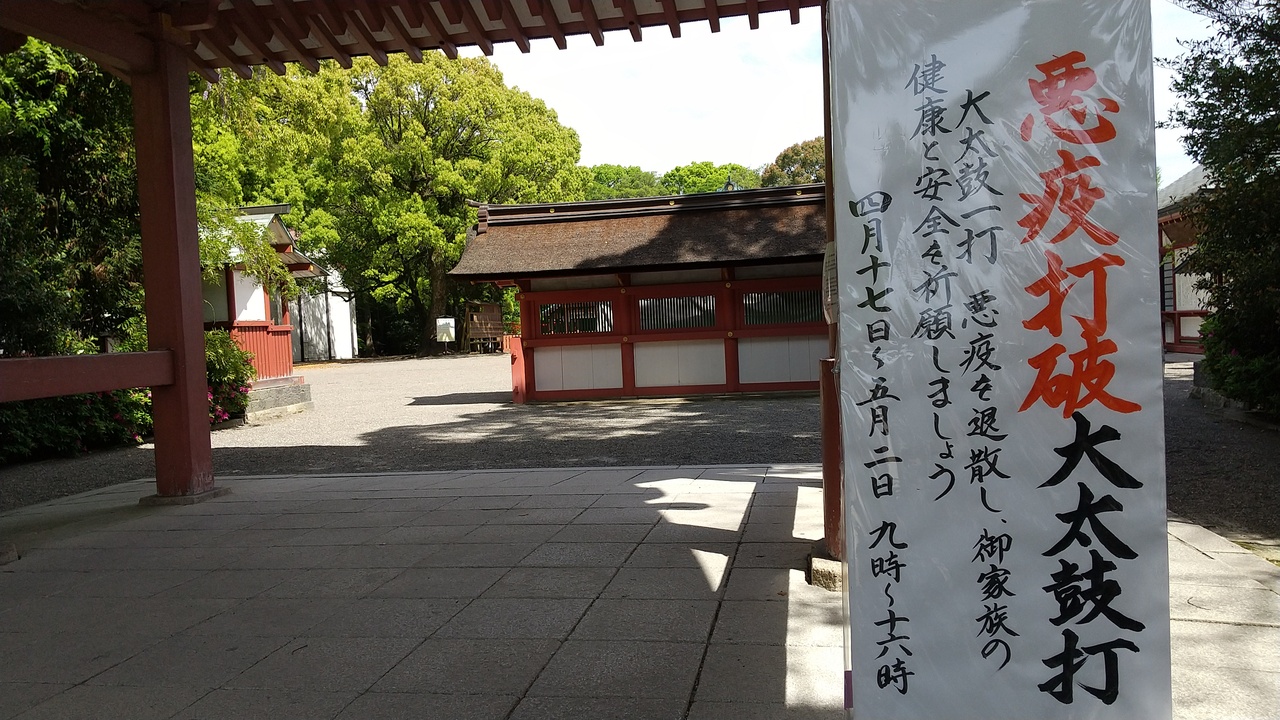 悪疫打破大太鼓打
大太鼓一打 悪疫を退散し、御家族の
健康と安全を祈願しましょう
四月十七日〜五月二日 九時〜十六時